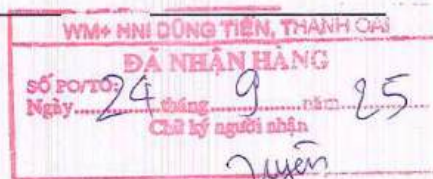 WM+ HNI DŨNG TIẾN, THANH OAI
ĐÃ NHẬN HÀNG
SỐ PO/TO:
Ngày 24 tháng 9 năm 25
Chữ ký người nhận
Luyến